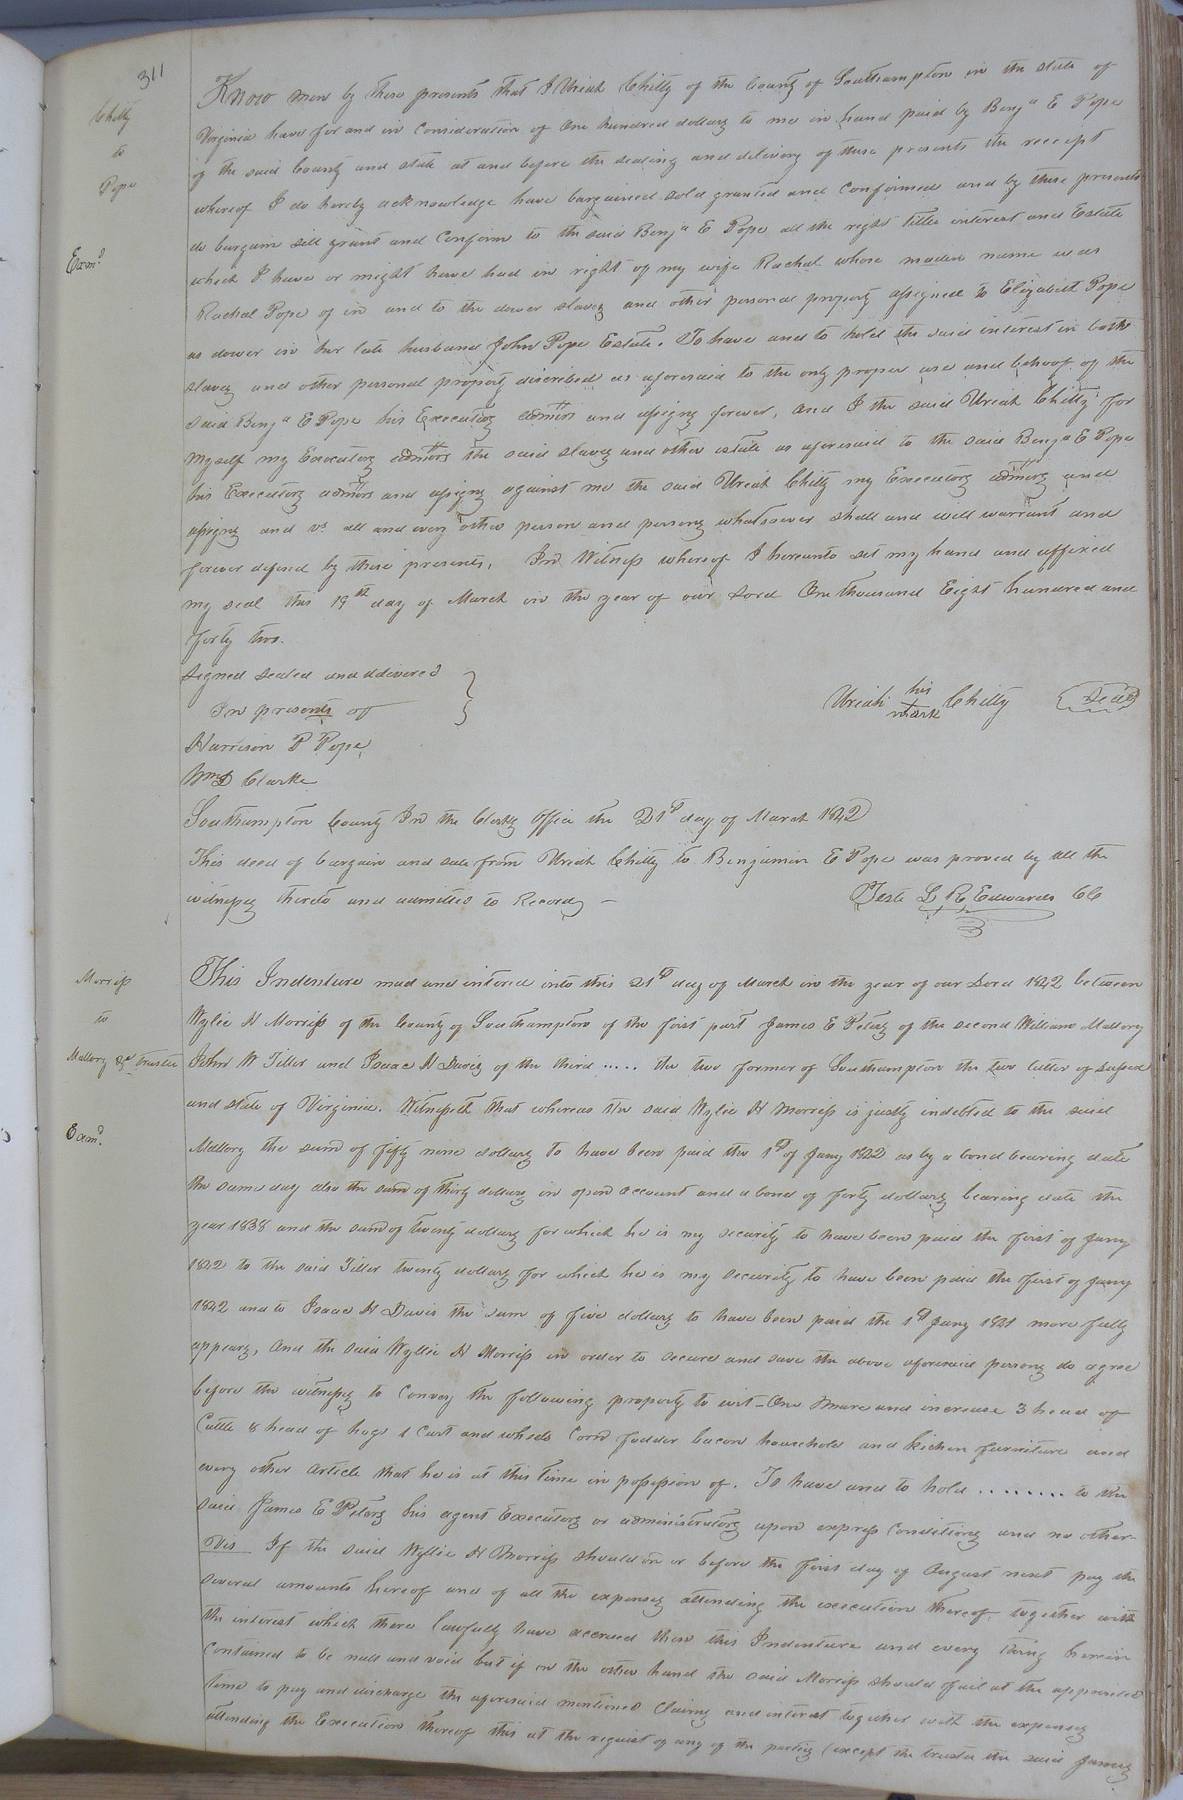 311
Chitty
to
Pope
Exmd
Know men by these presents that I Uriah Chitty of the County of Southampton in the state of
Virginia have for and in consideration of One hundred dollars to me in hand paid by Benja E Pope
of the said County and state at and before the sealing and delivery of these presents the receipt
whereof I do hereby acknowledge have bargained sold granted and confirmed and by these presents
do bargain sell grant and confirm to the said Benja E Pope all the right title interest and Estate
which I have or might have had in right of my wife Rachal whose maden name was
Rachal Pope of in and to the dower slaves and other personal property assigned to Elizabeth Pope
as dower in her late husband John Pope Estate. To have and to hold the said interest in both
slaves and other personal property discribed as aforesaid to the only proper use and behoof of the
said Benja E Pope his Executors admors and assigns forever, and I the said Uriah Chitty for
myself my Executors admors the said slaves and other estate as aforesaid to the said Benja E Pope
his Executors admors and assigns against me the said Uriah Chitty my Executors admors and
assigns and vs all and every other person and persons whatsoever shall and will warrant and
forever defend by these presents. In Witness whereof I hereunto set my hand and affixed
my seal this 19th day of March in the year of our Lord One thousand Eight hundred and
forty two.
Signed sealed and delivered
In presents of
Uriah his mark Chitty Seal
Harrison P Pope
Wm D Clarke
Southampton County In the Clerks Office the 21st day of March 1842
This deed of bargain and sale from Uriah Chitty to Benjamin E Pope was proved by all the
witnesses thereto and admitted to Record –
Teste L R Edwards CC
Morriss
to
Mallory &c Trustee
Examd
This Indenture mad and intered into this 21st day of March in the year of our Lord 1842 between
Wylie H Morriss of the County of Southampton of the first part James E Peters of the second William Mallory
John W Tiller and Isaac H Davis of the third ..... the two former of Southampton the two latter of Sussex
and state of Virginia. Witnesseth that whereas the said Wylie H Morriss is justly indebted to the said
Mallory the sum of fifty nine dollars to have been paid the 1st of Jany 1842 as by a bond bearing date
the same day also the sum of thirty dollars in open account and a bond of forty dollars bearing date the
year 1838 and the sum of twenty dollars for which he is my security to have been paid the first of Jany
1842 to the said Tiller twenty dollars for which he is my security to have been paid the first of Jany
1842 and to Isaac H Davis the sum of five dollars to have been paid the 1st Jany 1841 more fully
appears, and the said Wyllie H Morriss in order to secure and save the above aforesaid persons do agree
before the witnesses to convey the following property to wit – One Mare and increase 3 head of
Cattle 8 head of hogs 1 Cart and wheels Corn fodder bacon household and kichen furniture and
every other article that he is at this time in possession of. To have and to hold ......... to the
said James E Peters his agent Executors or administrators upon express conditions and no other
Vis If the said Wyllie H Morriss should on or before the first day of August next pay the
several amounts hereof and of all the expenses attending the execution thereof together with
the interest which there lawfully have accrued then this Indenture and every thing herein
contained to be null and void but if on the other hand the said Morriss should fail at the appointed
time to pay and discharge the aforesaid mentioned claims and interest together with the expenses
attending the Execution thereof this at the request of any of the parties (except the trustee the said James